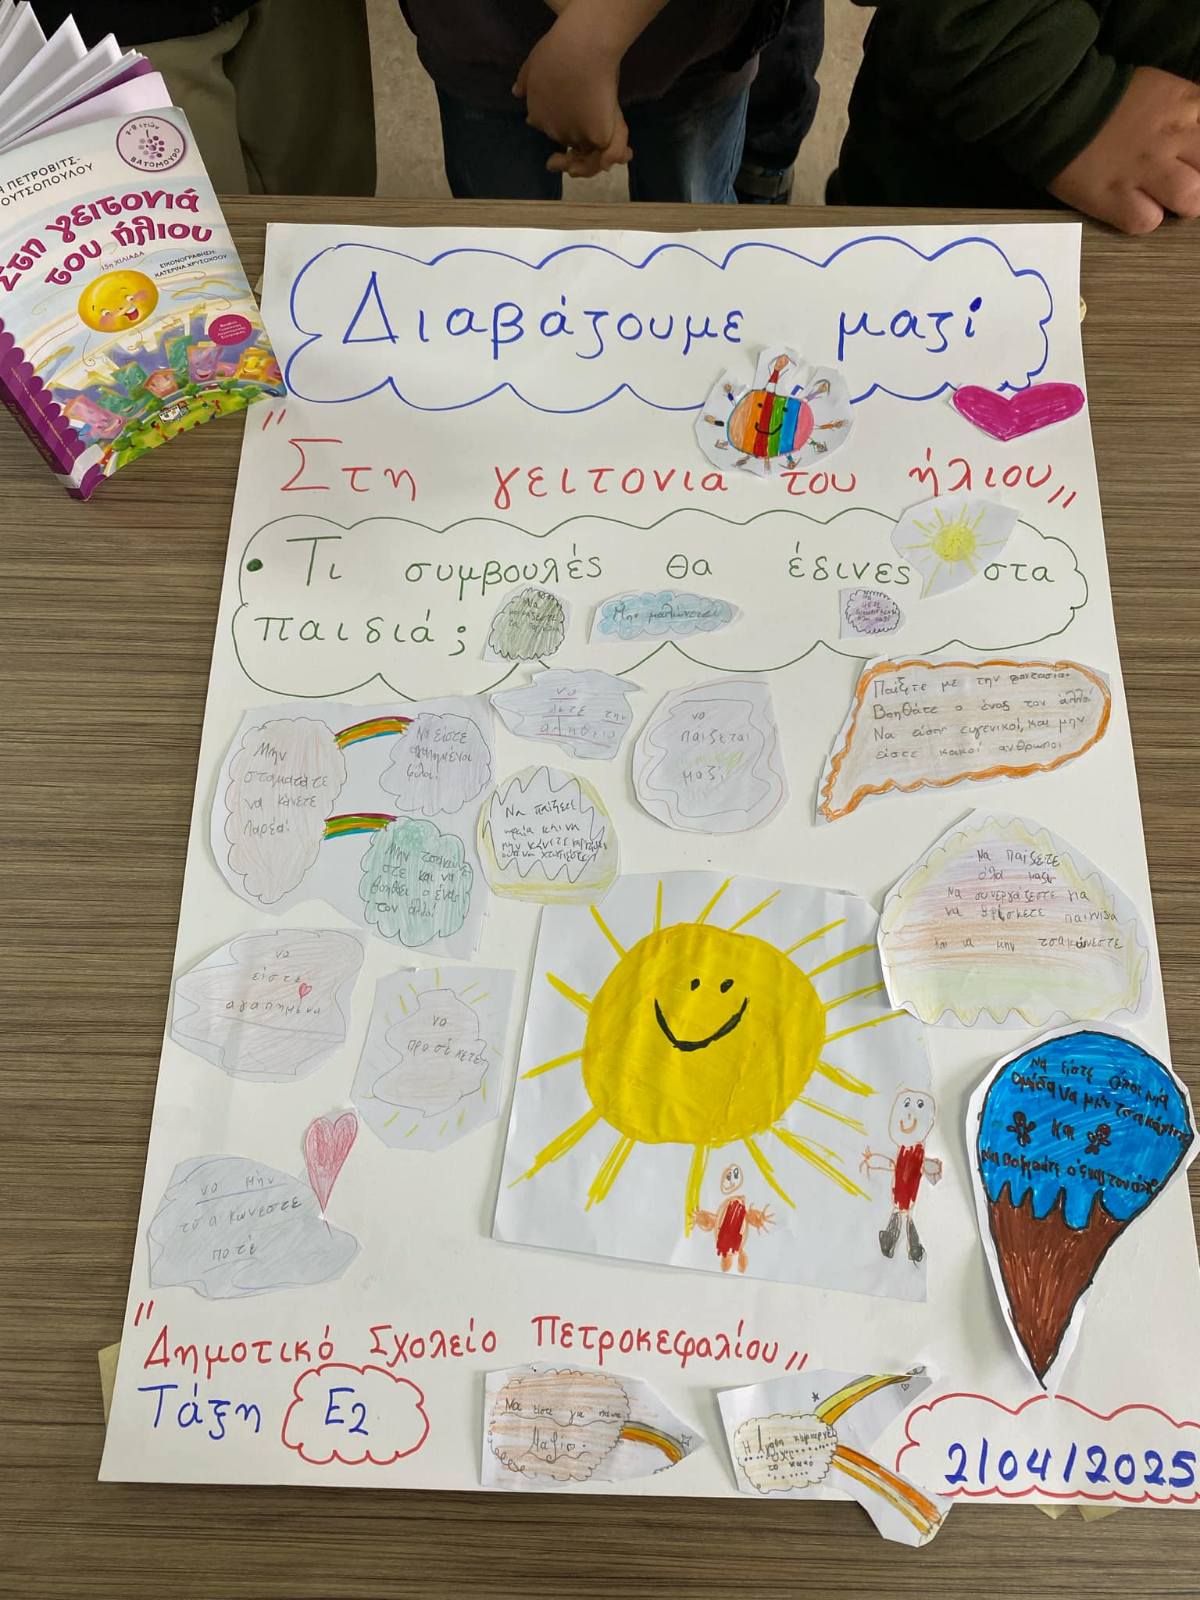 7-8 ετών
ΒΑΤΟΜΟΥΡΟ
ΠΕΤΡΟΒΙΤΣ-
ΟΥΤΣΟΠΟΥΛΟΥ
Στη γειτονιά
του ήλιου
15η ΧΙΛΙΑΔΑ
ΕΙΚΟΝΟΓΡΑΦΗΣΗ:
ΚΑΤΕΡΙΝΑ ΧΡΥΣΟΧΟΟΥ
Διαβάζουμε μαζί
"Στη γειτονια του ήλιου"
• Τι συμβουλές θα έδινες στα
παιδιά;
Μην μαλώνετε
Μην
σταματάτε
να κάνετε
Παρέα!
Να είστε
αγαπημένοι
φίλοι
στε και να
βοηθάει ο ένας
τον άλλο!
να
λέτε την
αλήθεια
Να παίζετε
ωραία και να
να
παιζεται
μαζί
Παίξτε με την φαντασία.
Βοηθάτε ο ένας τον άλλο
Να είστε ευγενικοί, και μην
είστε κακοί άνθρωποι
Να παίζετε
όλοι μαζί
Να συνεργάζεστε για
να βρίσκετε παιχνίδια
και να μην τσακώνεστε
να
είστε
αγαπημένοι
να
προσέχετε
να μην
τσακώνεστε
ποτέ
Να είστε όλοι μια
ομάδα να μην τσακώνεστε
και
"Δημοτικό Σχολείο Πετροκεφαλίου"
Τάξη Ε2
Να είστε για πάντα
Μαζί
Η αγάπη κυριαρχεί
όχι
το κακό
2/04/2025